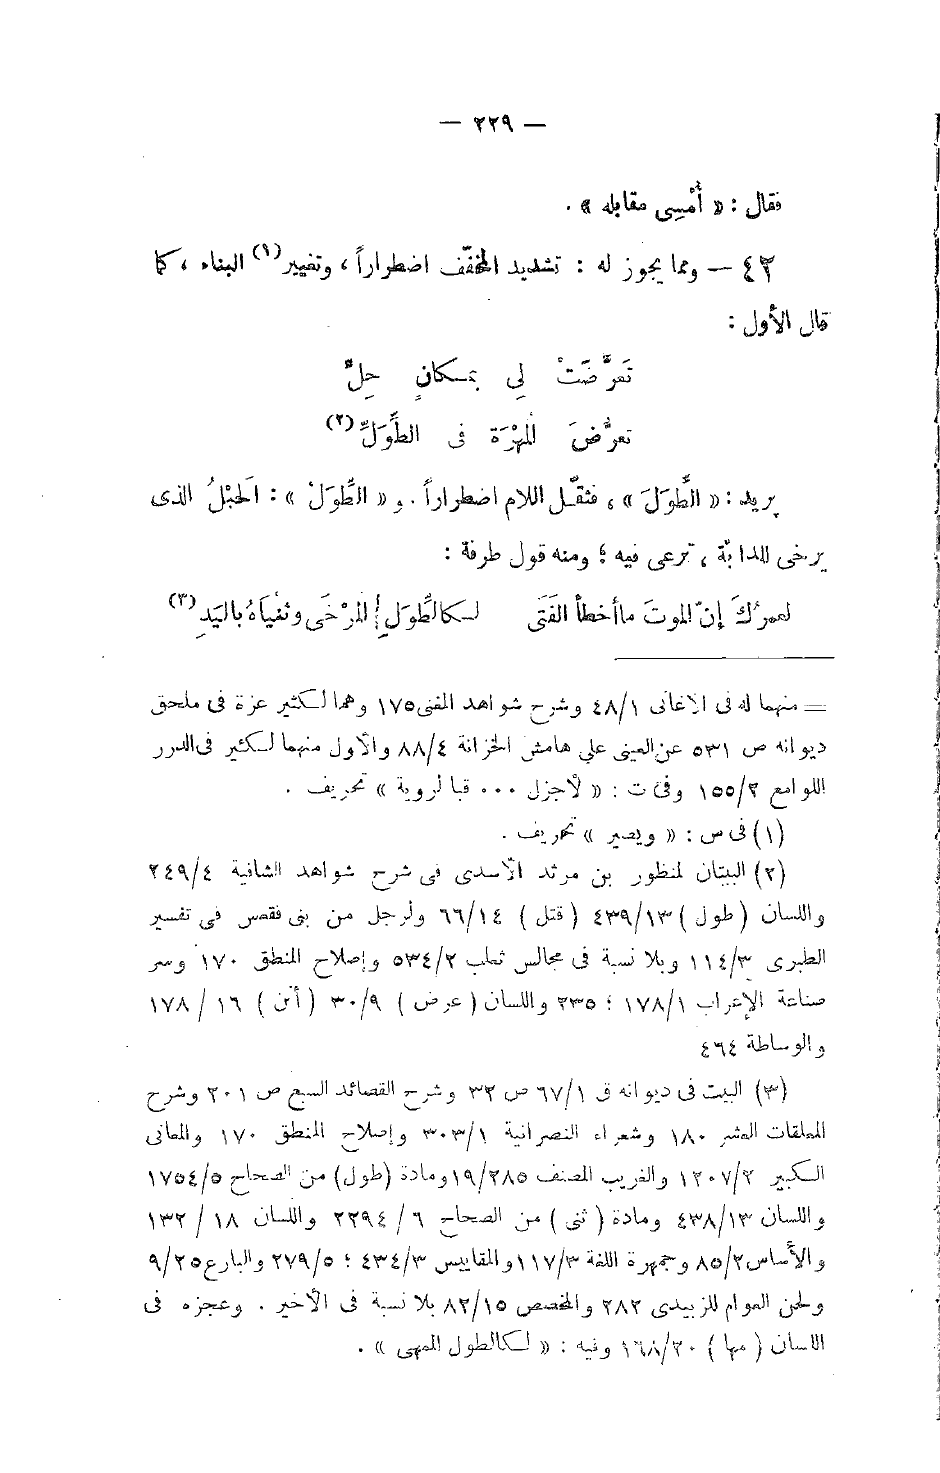 — ٢٢٩ —
فقال : « أُمْسِى مقابله » .
٤٢ — ومما يجوز له : تشديد المخفّف اضطراراً ، وتغيير (١) البناء ، كما
قال الأول :
تَعَرَّضَتْ لِي بِمَكانٍ حِلٍّ
تعرُّضَ المُهْرَة فى الطِّوَلِّ (٢)
يريد : « الطِّوَلَ » ، فثقّل اللام اضطراراً . و « الطِّوَلْ » : الَحبْلُ الذى
يرخى للدابّة ، ترعى فيه ؛ ومنه قول طرفة :
لعمرُكَ إنّ الموتَ ما أخطأ الفَتَى لكالطِّوَلِ المُرْخَى وثنْياَهُ باليَدِ (٣)
= منهما له فى الأغانى ٤٨/١ وشرح شواهد المغنى ١٧٥ وهما لكثير عزة فى ملحق
ديوانه ص ٥٣١ عن العينى على هامش الخزانة ٨٨/٤ والأول منهما لكثير فى الدرر
اللوامع ١٥٥/٢ وفى ت : « لأجزل ... قبا لروية » تحريف .
(١) فى س : « ويصير » تحريف .
(٢) البيتان لمنظور بن مرثد الأسدى فى شرح شواهد الشافية ٢٤٩/٤
واللسان ( طول ) ٤٣٩/١٣ ( قتل ) ٦٦/١٤ ولرجل من بنى فقعس فى تفسير
الطبرى ١١٤/٣ وبلا نسبة فى مجالس ثعلب ٥٣٤/٢ وإصلاح المنطق ١٧٠ وسر
صناعة الإعراب ١٧٨/١ ؛ ٢٣٥ واللسان ( عرض ) ٣٠/٩ ( أنن ) ١٦ / ١٧٨
والوساطة ٤٦٤
(٣) البيت فى ديوانه ق ٦٧/١ ص ٣٢ وشرح القصائد السبع ص ٢٠١ وشرح
المعلقات العشر ١٨٠ وشعراء النصرانية ٣٠٣/١ وإصلاح المنطق ١٧٠ والمعانى
الكبير ١٢٠٧/٢ والغريب المصنف ١٩/٢٨٥ ومادة ( طول ) من الصحاح ١٧٥٤/٥
واللسان ٤٣٨/١٣ ومادة ( ثنى ) من الصحاح ٦ / ٢٢٩٤ واللسان ١٨ / ١٣٢
والأساس ٨٥/٢ وجمهرة اللغة ١١٧/٣ والمقاييس ٤٣٤/٣ ؛ ٢٧٩/٥ والبارع ٩/٢٥
ولحن العوام للزبيدى ٢٨٢ والمخصص ٨٢/١٥ بلا نسبة فى الأخير . وعجزه فى
اللسان ( مها ) ١٦٨/٢٠ وفيه : « لكالطول الممهى » .